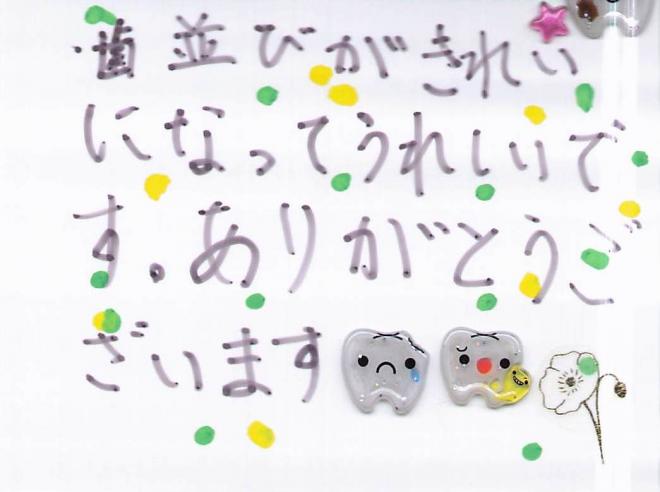 歯並びがきれい
になってうれしいで
す。ありがとうご
ざいます